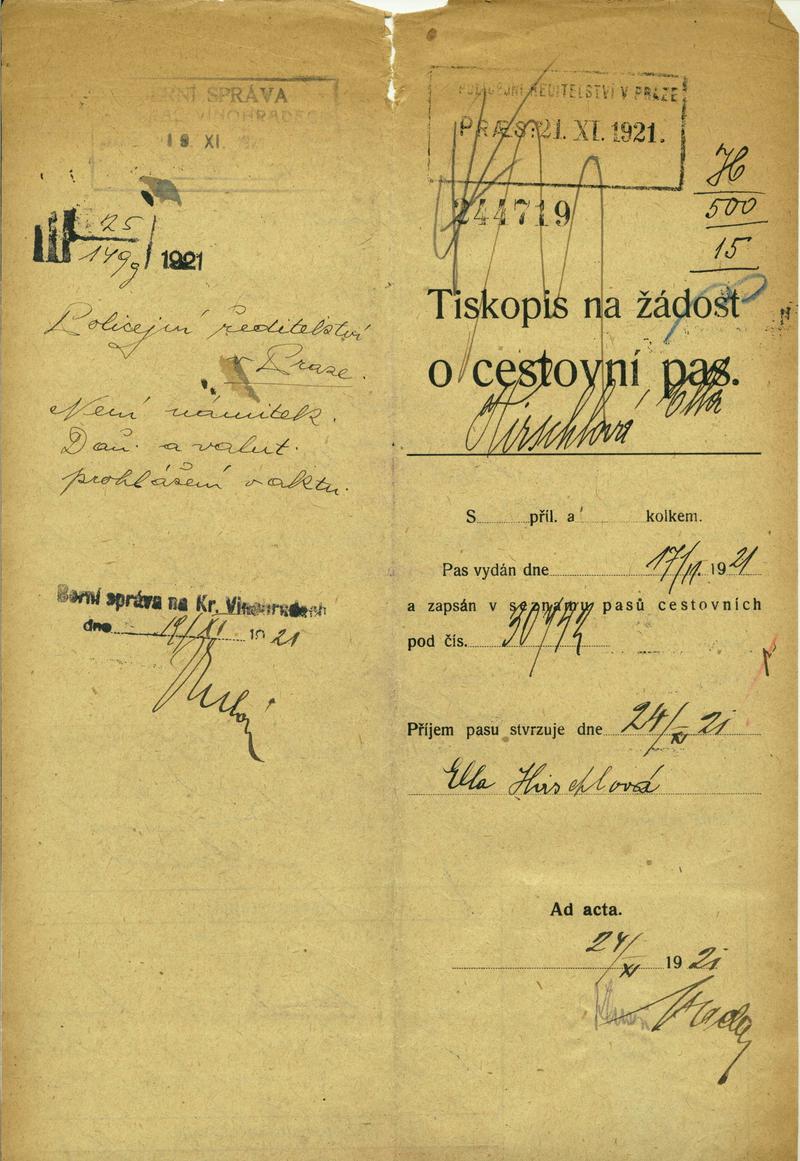 BERNÍ SPRÁVA
VINOHRADECH
19. XI.
III 25
149g / 1921
Policejní ředitelství
v Praze.
Není námitek.
Daň. a valut.
prohlášení v aktu.
Berní správa na Kr. Vinohradech
dne 19/XI 1921
POLICEJNÍ ŘEDITELSTVÍ V PRAZE
PRAES: 21. XI. 1921.
244719
H
500
15
Tiskopis na žádost
o cestovní pas.
Hirschlová Ella
S příl. a kolkem.
Pas vydán dne 1921
a zapsán v seznamu pasů cestovních
pod čís.
Příjem pasu stvrzuje dne 24/XI 21
Ella Hirschlová
Ad acta.
24/XI 1921